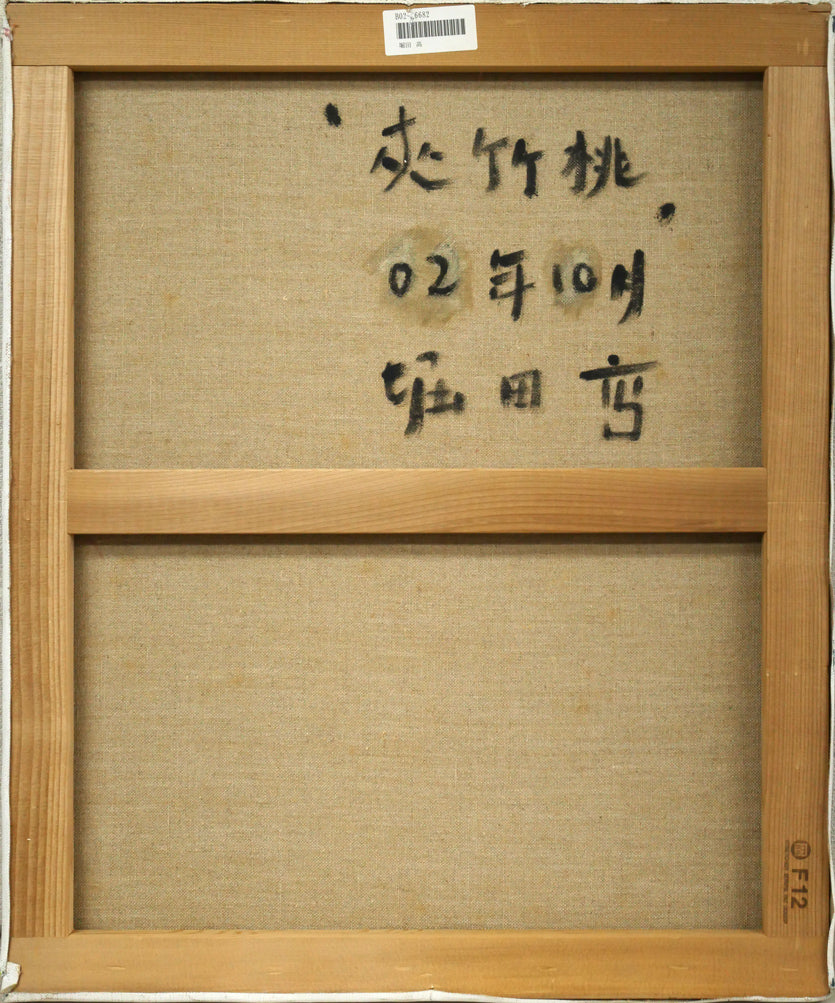 B02-6682
堀田 高
夾竹桃
02年10月
堀田高
F12